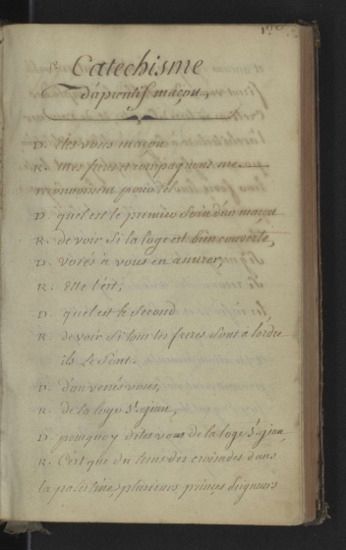 Catechisme
d'aprentif maçon,
D. êtes vous maçon
R. mes freres et compagnons me
reconnoissent pour tel
D. quel est le premier soin d'un maçon
R. de voir si la loge est bien couverte,
D. voiés à vous en assurer,
R. elle l'est;
D. quel est le second
R. de voir si tous les freres sont a lordre
ils le sont.
D. d'ou venés vous,
R. de la loge St. jean,
D. pourquoy dites vous de la loge St. jean,
R. C'est que du tems des croisades dans
la palestine, plusieurs princes seigneurs